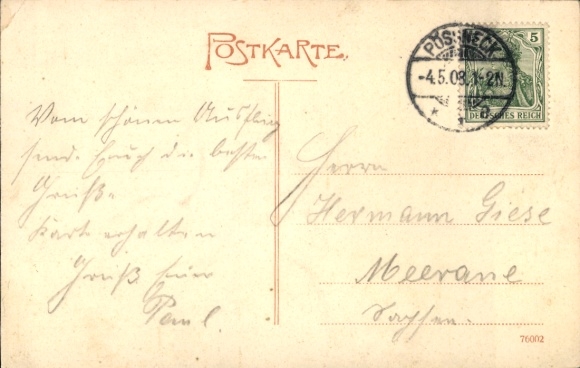 POSTKARTE.
PÖSSNECK
-4.5.08.1-2N.
5
DEUTSCHES REICH
Vom schönen Ausflug
sende Euch die besten
Grüße
Karte erhalten
Gruß Euer
Paul.
Herrn
Hermann Giese
Meerane
Sachsen.
76002